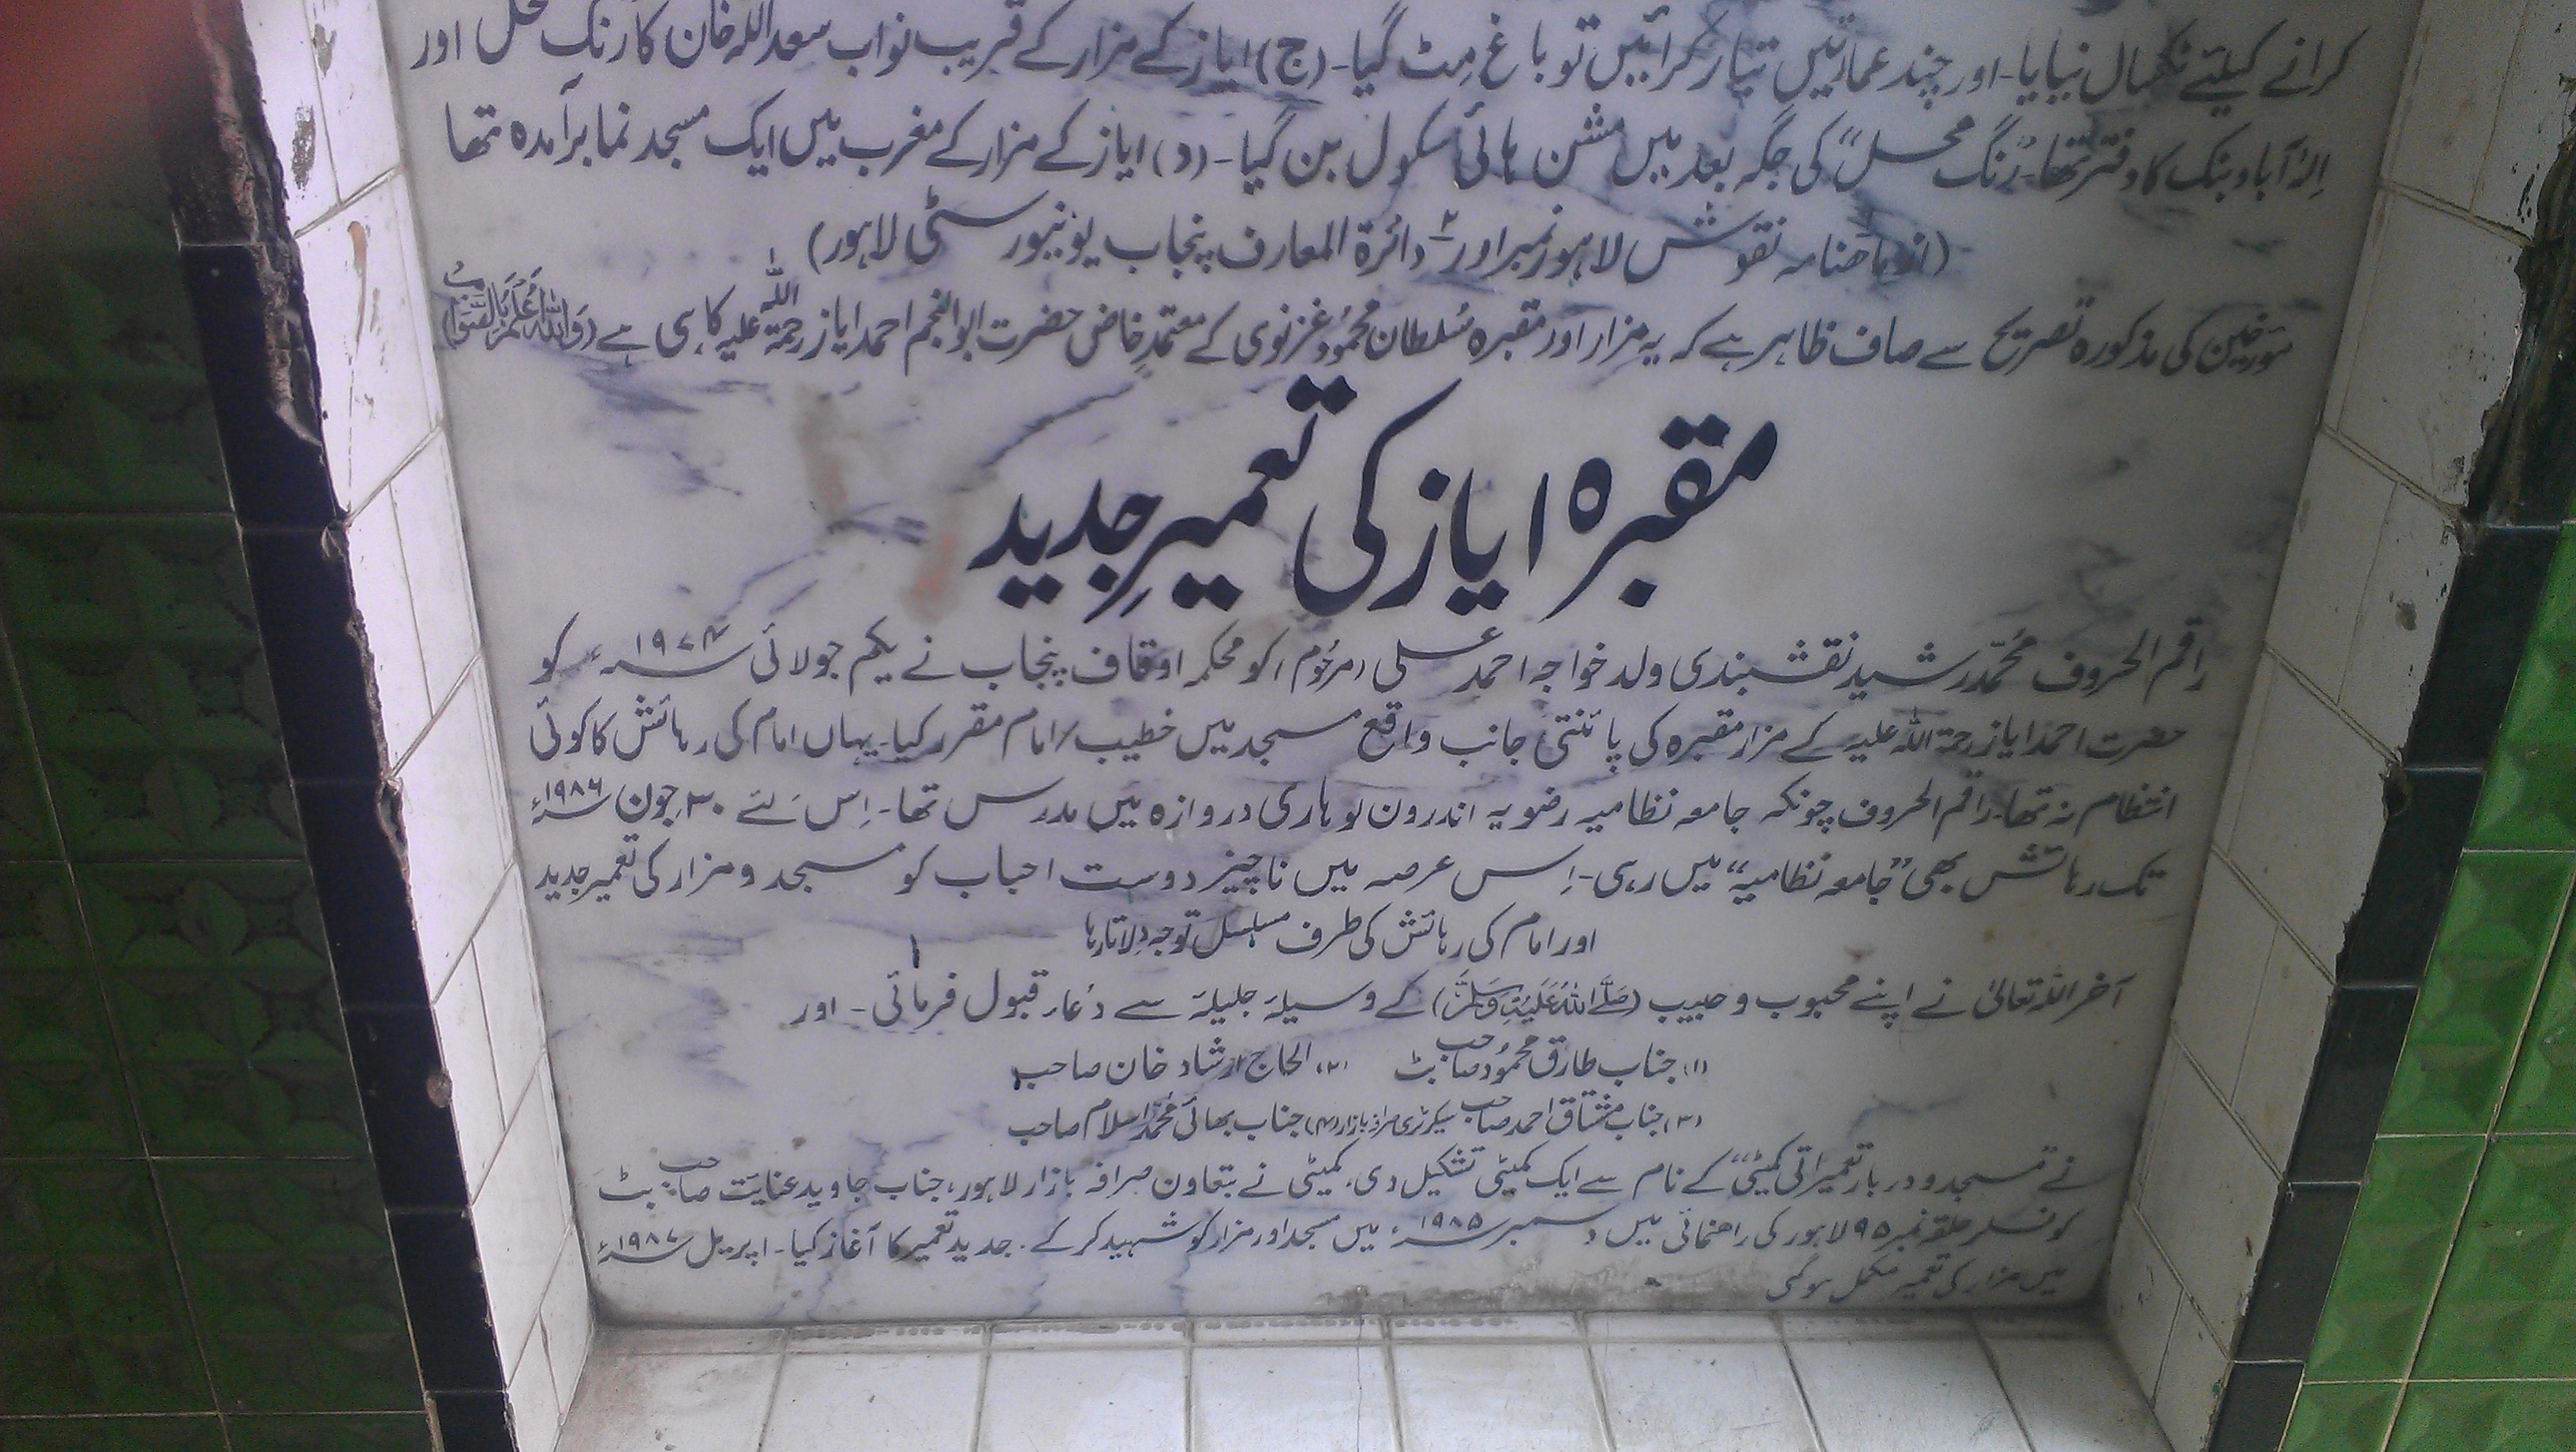 کرانے کیلئے ٹکسال بنایا۔ اور چند عمارتیں تیار کرائیں تو باغ مِٹ گیا۔ (ج) ایاز کے مزار کے قریب نواب سعداللہ خان کا رنگ محل اور
الہٰ آباد بنک کا دفتر تھا۔ "رنگ محل" کی جگہ بعد میں مشن ہائی سکول بن گیا۔ (د) ایاز کے مزار کے مغرب میں ایک مسجد نما برآمدہ تھا
(از ماھنامہ نقوش لاہور نمبر اور ۲ دائرۃ المعارف پنجاب یونیورسٹی لاہور)
مورخین کی مذکورہ تصریح سے صاف ظاہر ہے کہ یہ مزار اور مقبرہ سُلطان محمُود غزنوی کے معتمدِ خاص حضرت ابوالنجم احمد ایاز رحمۃ اللہ علیہ کا ہی ہے (وَاللہُ اَعْلَمُ بِالصَّوَابُ)
مقبرہ ایاز کی تعمیرِ جدید
راقم الحروف مُحمّد رشید نقشبندی ولد خواجہ احمد علی (مرحُوم) کو محکمہ اوقاف پنجاب نے یکم جولائی ۱۹۷۴ء کو
حضرت احمد ایاز رحمۃ اللہ علیہ کے مزار مقبرہ کی پائنتی جانب واقع مسجد میں خطیب/امام مقرر کیا۔ یہاں امام کی رہائش کا کوئی
انتظام نہ تھا۔ راقم الحروف چونکہ جامعہ نظامیہ رضویہ اندرون لوہاری دروازہ میں مدرس تھا۔ اِس لئے ۳۰ جون ۱۹۸۶ء
تک رہائش بھی "جامعہ نظامیہ" میں رہی۔ اِس عرصہ میں ناچیز دوست احباب کو مسجد و مزار کی تعمیر جدید
اور امام کی رہائش کی طرف مسلسل توجہ دِلاتا رہا
آخر اللہ تعالیٰ نے اپنے محبوب و حبیب (صَلَّی اللہُ عَلَیْہِ وَسَلَّمَ) کے وسیلۂ جلیلہ سے دُعاء قبول فرمائی۔ اور
(۱) جناب طارق محمُود صاحب بٹ (۲) الحاج ارشاد خان صاحب
(۳) جناب مشتاق احمد صاحب سیکرٹری صرافہ بازار (۴) جناب بھائی مُحمّد اسلام صاحب
نے "مسجد و دربار تعمیراتی کمیٹی" کے نام سے ایک کمیٹی تشکیل دی۔ کمیٹی نے بتعاون صرافہ بازار لاہور، جناب جاوید عنایت صاحب بٹ
کونسلر حلقہ نمبر ۹۵ لاہور کی راھنمائی میں دسمبر ۱۹۸۵ء میں مسجد اور مزار کو شہید کر کے۔ جدید تعمیر کا آغاز کیا۔ اپریل ۱۹۸۷ء
میں مزار کی تعمیر مکمل ہو گئی